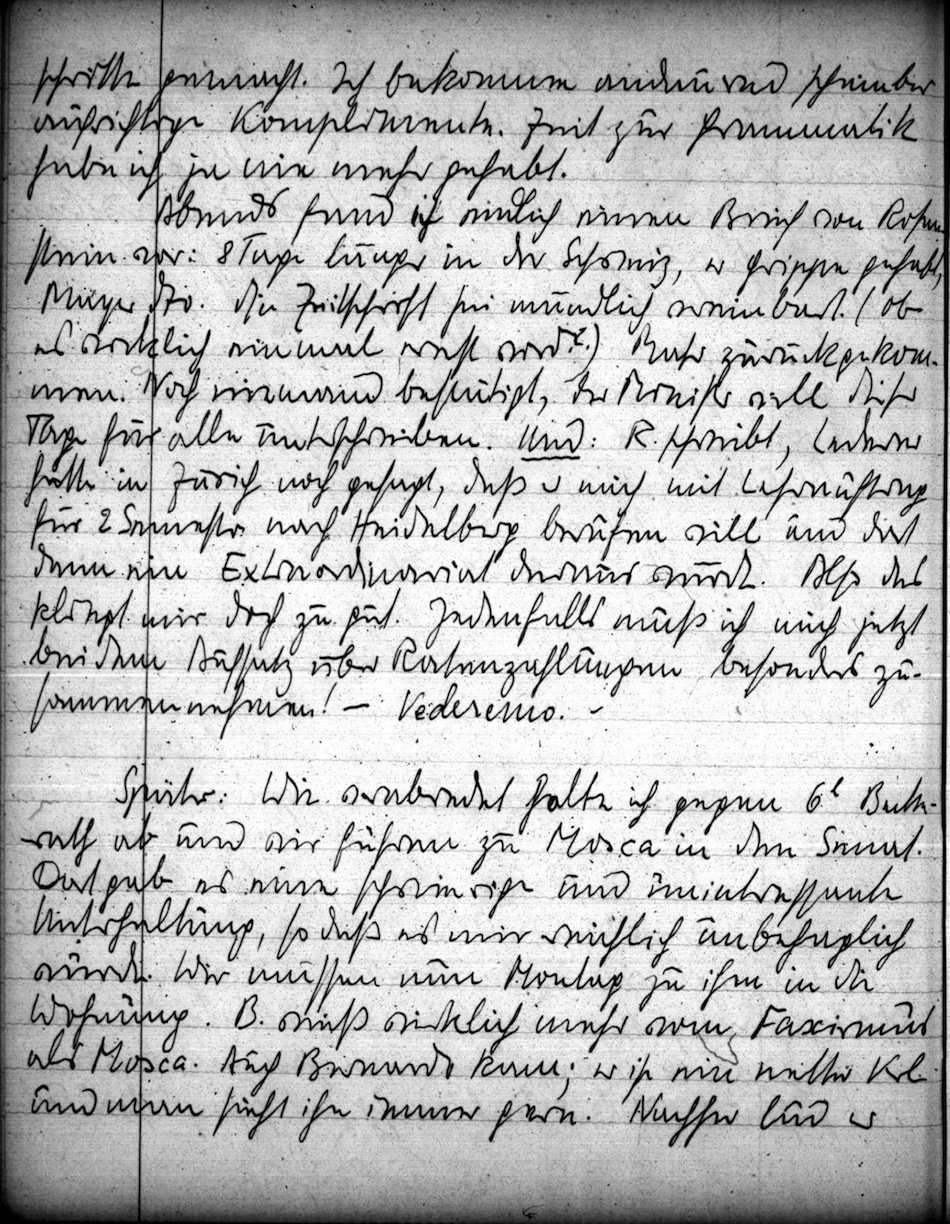 schritte gemacht. Ich bekomme andauernd scheinbar
aufrichtige Komplimente. Zeit zur Grammatik
habe ich ja nie mehr gehabt.
Abends fand ich endlich einen Brief von Rosen-
stein vor: 8 Tage länger in der Schweiz, er Grippe gehabt,
Meyer dto. Die Zeitschrift sei mündlich vereinbart. (Ob
es wirklich einmal ernst wird?.) Ruhr zurückgekom-
men. Noch niemand bestätigt, der Minister will diese
Tage für alle unterschreiben. Und: R. schreibt, Lederer
hätte in Zürich noch gesagt, daß er mich mit Lehrauftrag
für 2 Semester nach Heidelberg berufen will und daß
dann ein Extraordinariat daraus würde. Also das
klingt mir doch zu gut. Jedenfalls muß ich mich jetzt
bei dem Aufsatz über Ratenzahlungen besonders zu-
sammennehmen! – Vederemo. –
Später: Wie verabredet holte ich gegen 6h
ab und wir fuhren zu Mosca in den Senat.
Dort gab es eine schwierige und uninteressante
Unterhaltung, so daß es mir reichlich unbehaglich
wurde. Wir müssen nun Montag zu ihm in die
Wohnung. B. weiß wirklich mehr vom Faxismus
als Mosca. Auch Bernardo kam; er ist ein netter Kerl
und man sieht ihn immer gern. Nachher lud er